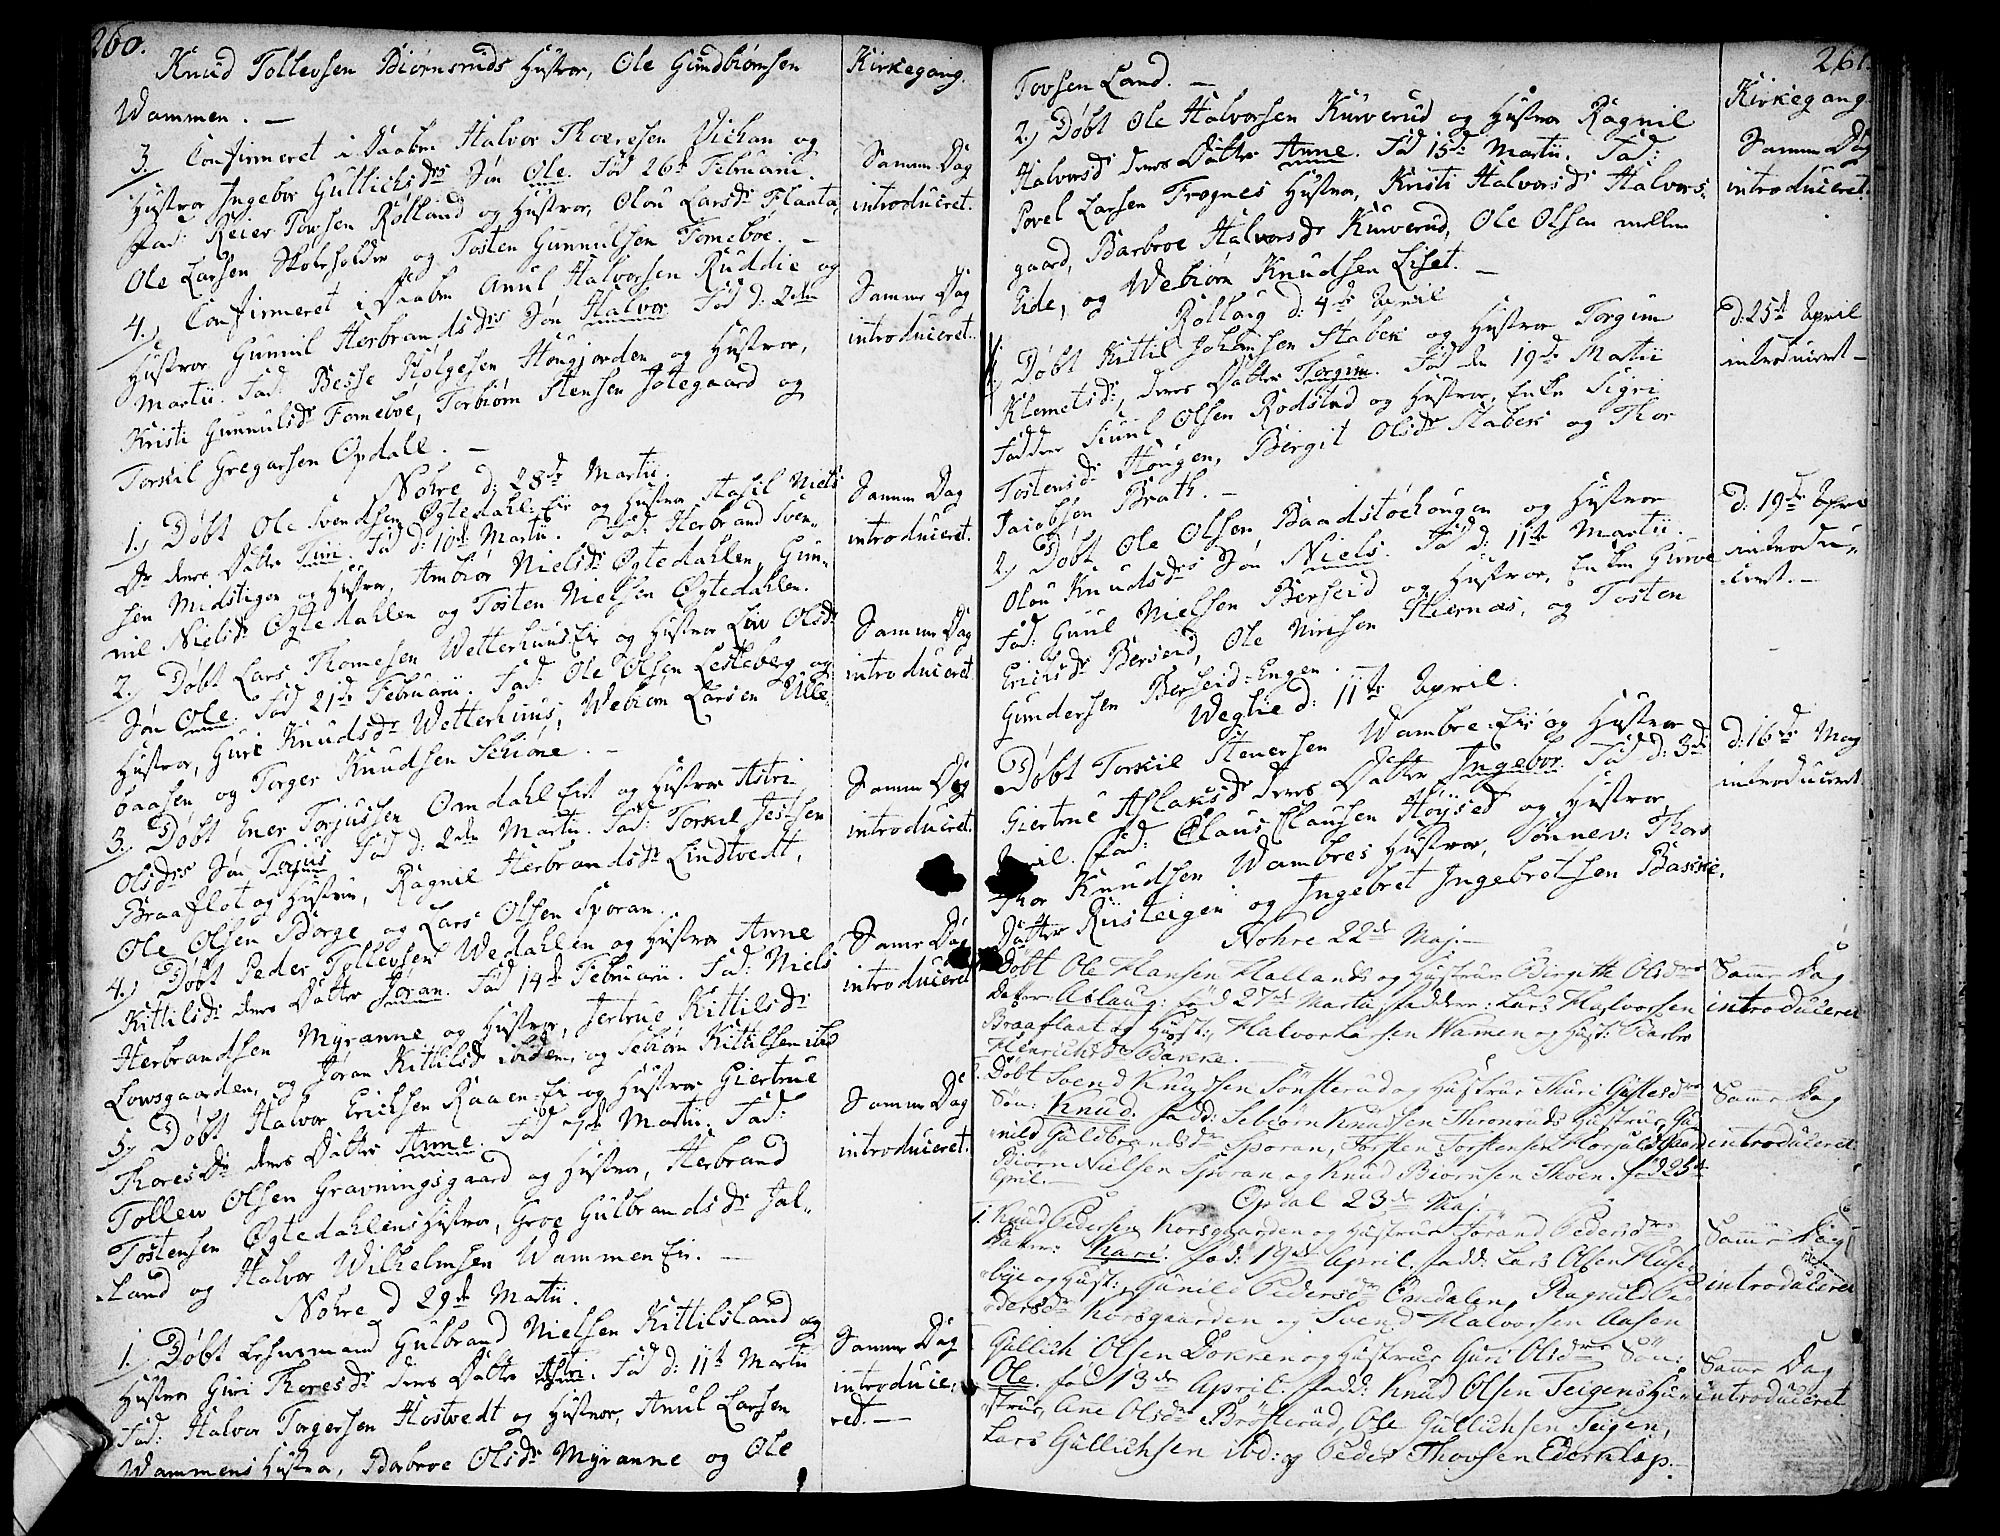 260.
Knud Tollevsen Biørnsruds Hustroe, Ole Gundbiørnsen
Wammen. —
3. Confirmeret i Daaben Halvor Thoresen Vichan og
Hustroe Ingebor Gullichsdrs Søn Ole. Fød 26de Februarii.
Fad: Reier Tovsen Rolland og Hustroe, Olou Larsdr Flaata,
Ole Larsen Skoleholder og Tosten Gunnulsen Tomeboe. —
4. Confirmeret i Daaben Anul Halvorsen Ruddie og
Hustroe Gunnil Herbrandsdrs Søn Halvor Fød d: 2den
Martii. Fad: Besse Holgesen Hougjorden og Hustroe,
Kristi Gunnulsdr Tomeboe, Torbiørn Stensen Jøtegaard og
Torkil Gregarsen Opdall. —
Nohre d: 28de Martii.
1. Døbt Ole Svendsen Øgtedahl-Eie og Hustroe Aasil Niels
Dr deres Datter Turi. Fød d: 10de Martii. Fad: Herbrand Sven-
sen Midstigen og Hustroe, Ambiør Nielsdr Øgtedahlen, Gun-
nil Nielsdr Øgtedahlen og Tosten Nielsen Øgtedahlen.
2. Døbt Lars Thomesen WetterhuusEie og Hustroe Liv Olsdr
Søn Ole. Fød 21de Februarii. Fad: Ole Olsen Lesteberg og
Hustroe, Guri Knudsdr Wetterhuus, Webiørn Larsen Ulle-
baasen og Torger Knudsen Schiøne. —
3. Døbt Ener Torjussen Omdahl Eie og Hustroe Astri
Olsdrs Søn Torjus Fød d: 2den Martii. Fad: Torkil Jessen
Braaflot og Hustroe, Ragnil Herbrandsdr Lindtvedt,
Ole Olsen Borge og Lars Olsen Sporan.
4. Døbt Peder Tollevsen Wedahlen og Hustroe Anne
Kittilsdr deres Datter Jøran. Fød 14de Februarii. Fad: Niels
Herbrandsen Myranne og Hustroe, Jertrue Kittilsdr
Lowsgaarden, og Jøran Kittilsdr ibidem, og Sebiørn Kittilsen ibd
5. Døbt Halvor Erichsen Raaen-Eie og Hustroe Giertrue
Thoresdr deres Datter Anne. Fød 7de Martii. Fad:
Tollew Olsen Gravningsgaard og Hustroe, Herbrand
Tostensen Øgtedahlens Hustroe, Groe Gulbrandsdr Jal-
Land og Halvor Wilhelmsen WammenEie. —
Nohre d 29de Martii.
1. Døbt Lehnsmand Gulbrand Nielsen Kittilsland og
Hustroe Giri Thoresdr deres Datter Astri. Fød d: 11te Martii
Fad: Halvor Torgersen Hostvedt og Hustroe, Anul Larsen
Wammens Hustroe, Barbroe Olsdr Myranne og Ole
Kirkegang.
Samme Dag
introduceret.
Samme Dag
introduceret.
Samme Dag
introduceret.
Samme Dag
introduceret.
Samme Dag
introduceret.
Samme Dag
introduceret
Samme Dag
introduceret.
Samme Dag
introduce-
ret. —
261.
Tovsen Land. —
2. Døbt Ole Halvorsen Kurverud og Hustroe Ragnil
Halvorsd deres Datter Anne. Fød 15de Martii. Fad:
Povel Larsen Frognes Hustroe, Kristi Halvorsdr Halvors-
gaard, Barbroe Halvorsdr Kurverud, Ole Olsen mellem
Eide, og Webiørn Knudsen Liset. —
Rollaug d: 4de April
1. Døbt Kittil Johansen Stabek og Hustroe Torgun
Klemetsdr, deres Datter Torgun. Fød den 19de Martii
Faddere Kiuil Olsen Rodstad og Hustroe, Enke Sigri
Tostensdr Hougen, Bergit Olsdr Stabek og Thor
Jacobsen Brath. —
2. Døbt Ole Olsen, Baadstøehougen og Hustroe
Olou Knudsdrs Søn Niels. Fød d: 11te Martii.
Fad: Guul Nielsen Berseid og Hustroe, Enken Gurve
Erichsdr Berseid, Ole Nirisen Stiernæs, og Tosten
Gundersen Berseid-Engen.
Weglie d: 11te April.
Døbt Torkil Stenersen Wambre-Eie og Hustroe
Giertrue Aslaksdr deres Datter Ingebor. Fød d: 3die
April. Fad: Claus Clausen Høysed og Hustroe,
Thor Knudsen Wambres Hustroe, Sønnev: Thors
Datter Riisteigen og Ingebret Ingebretsen Baskie.
Nohre 22de Maj. —
Døbt Ole Hansen Hallands og Hustrue Birgitte Olsdrs
Datter: Aslaug: Fød 27de Martii, Faddere: Lars Halvorsen
Braaflaat og Hust:, Halvor Larsen Wamen og Hust: Barbro
Henrichsdr Bakke. —
Døbt Svend Knudsen Sønsterud og Hustrue Thuri Gullesdrs
Søn: Knud. Fadd: Sebiørn Knudsen Thronruds Hustrue, Gu-
nild Guldbrandsdr Sporan, Torsten Torstensen Morfuldsgaard
Biørn Nielsen Sporan og Knud Biørnsen Thoen. fød 25de
April. —
Opdal 23de Maj.
1. Knud Pedersen Korsgaarden og Hustrue Jørand Pedersdrs
Datter: Kari. Fød: 19de April. Fadd: Lars Olsen Huse-
bye og Hust:, Gunild Pedersdr Omdalen, Ragnild Pe-
dersdr Korsgaarden og Svend Halvorsen Aasen
Gullich Olsen Dokken og Hustrue Guri Olsdrs Søn:
Ole. fød 13de April. Fadd: Knud Olsen Teigens Hu-
strue, Ane Olsdr Brøsterud, Ole Gullichsen Teigen,
Lars Gullichsen ibd: og Peder Thovsen Ederklep. —
Kirkegang.
Samme Dag
introduceret.
D: 25de April
introduceret —
D: 19de April
introdu-
ceret. —
d: 16de Maj
introduceret
Same Dag
introduceret
Same Dag
introduceret.
Same Dag
introduceret
Same Dag
introduceret.